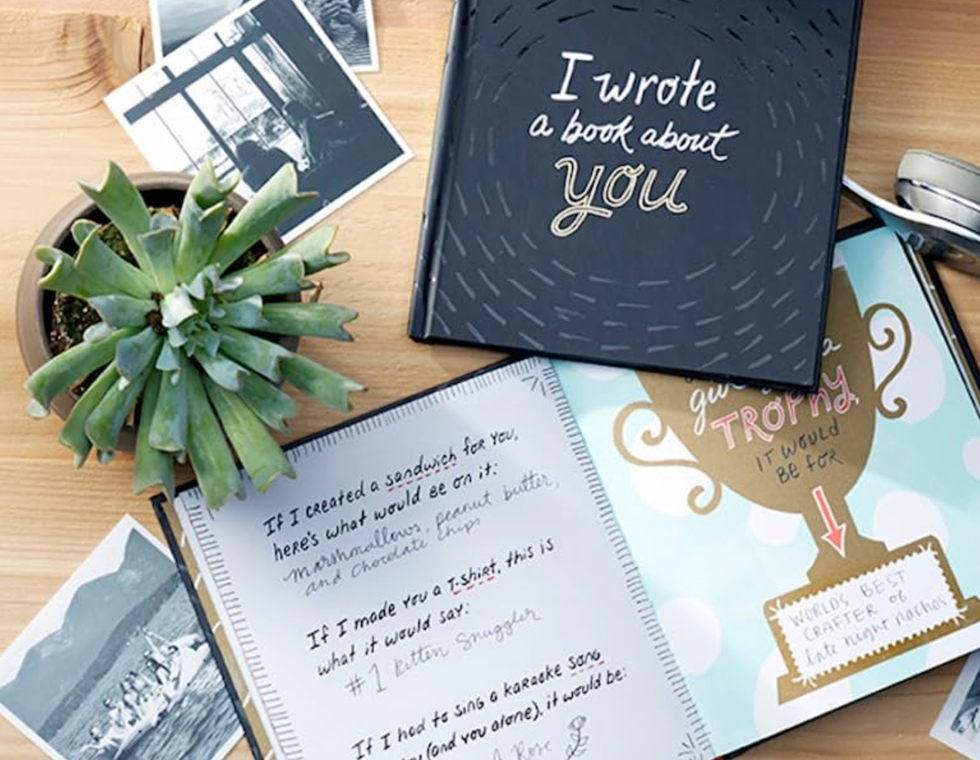 I wrote
a book about
you
If I created a sandwich for you,
here's what would be on it:
marshmallows, peanut butter,
and chocolate chips
If I made you a T-shirt, this is
what it would say:
#1 Kitten Snuggler
If I had to sing a karaoke song
(and you alone), it would be:
Rose
a
TROPHY,
IT WOULD
BE FOR
WORLD'S BEST
CRAFTER OF
late night nachos